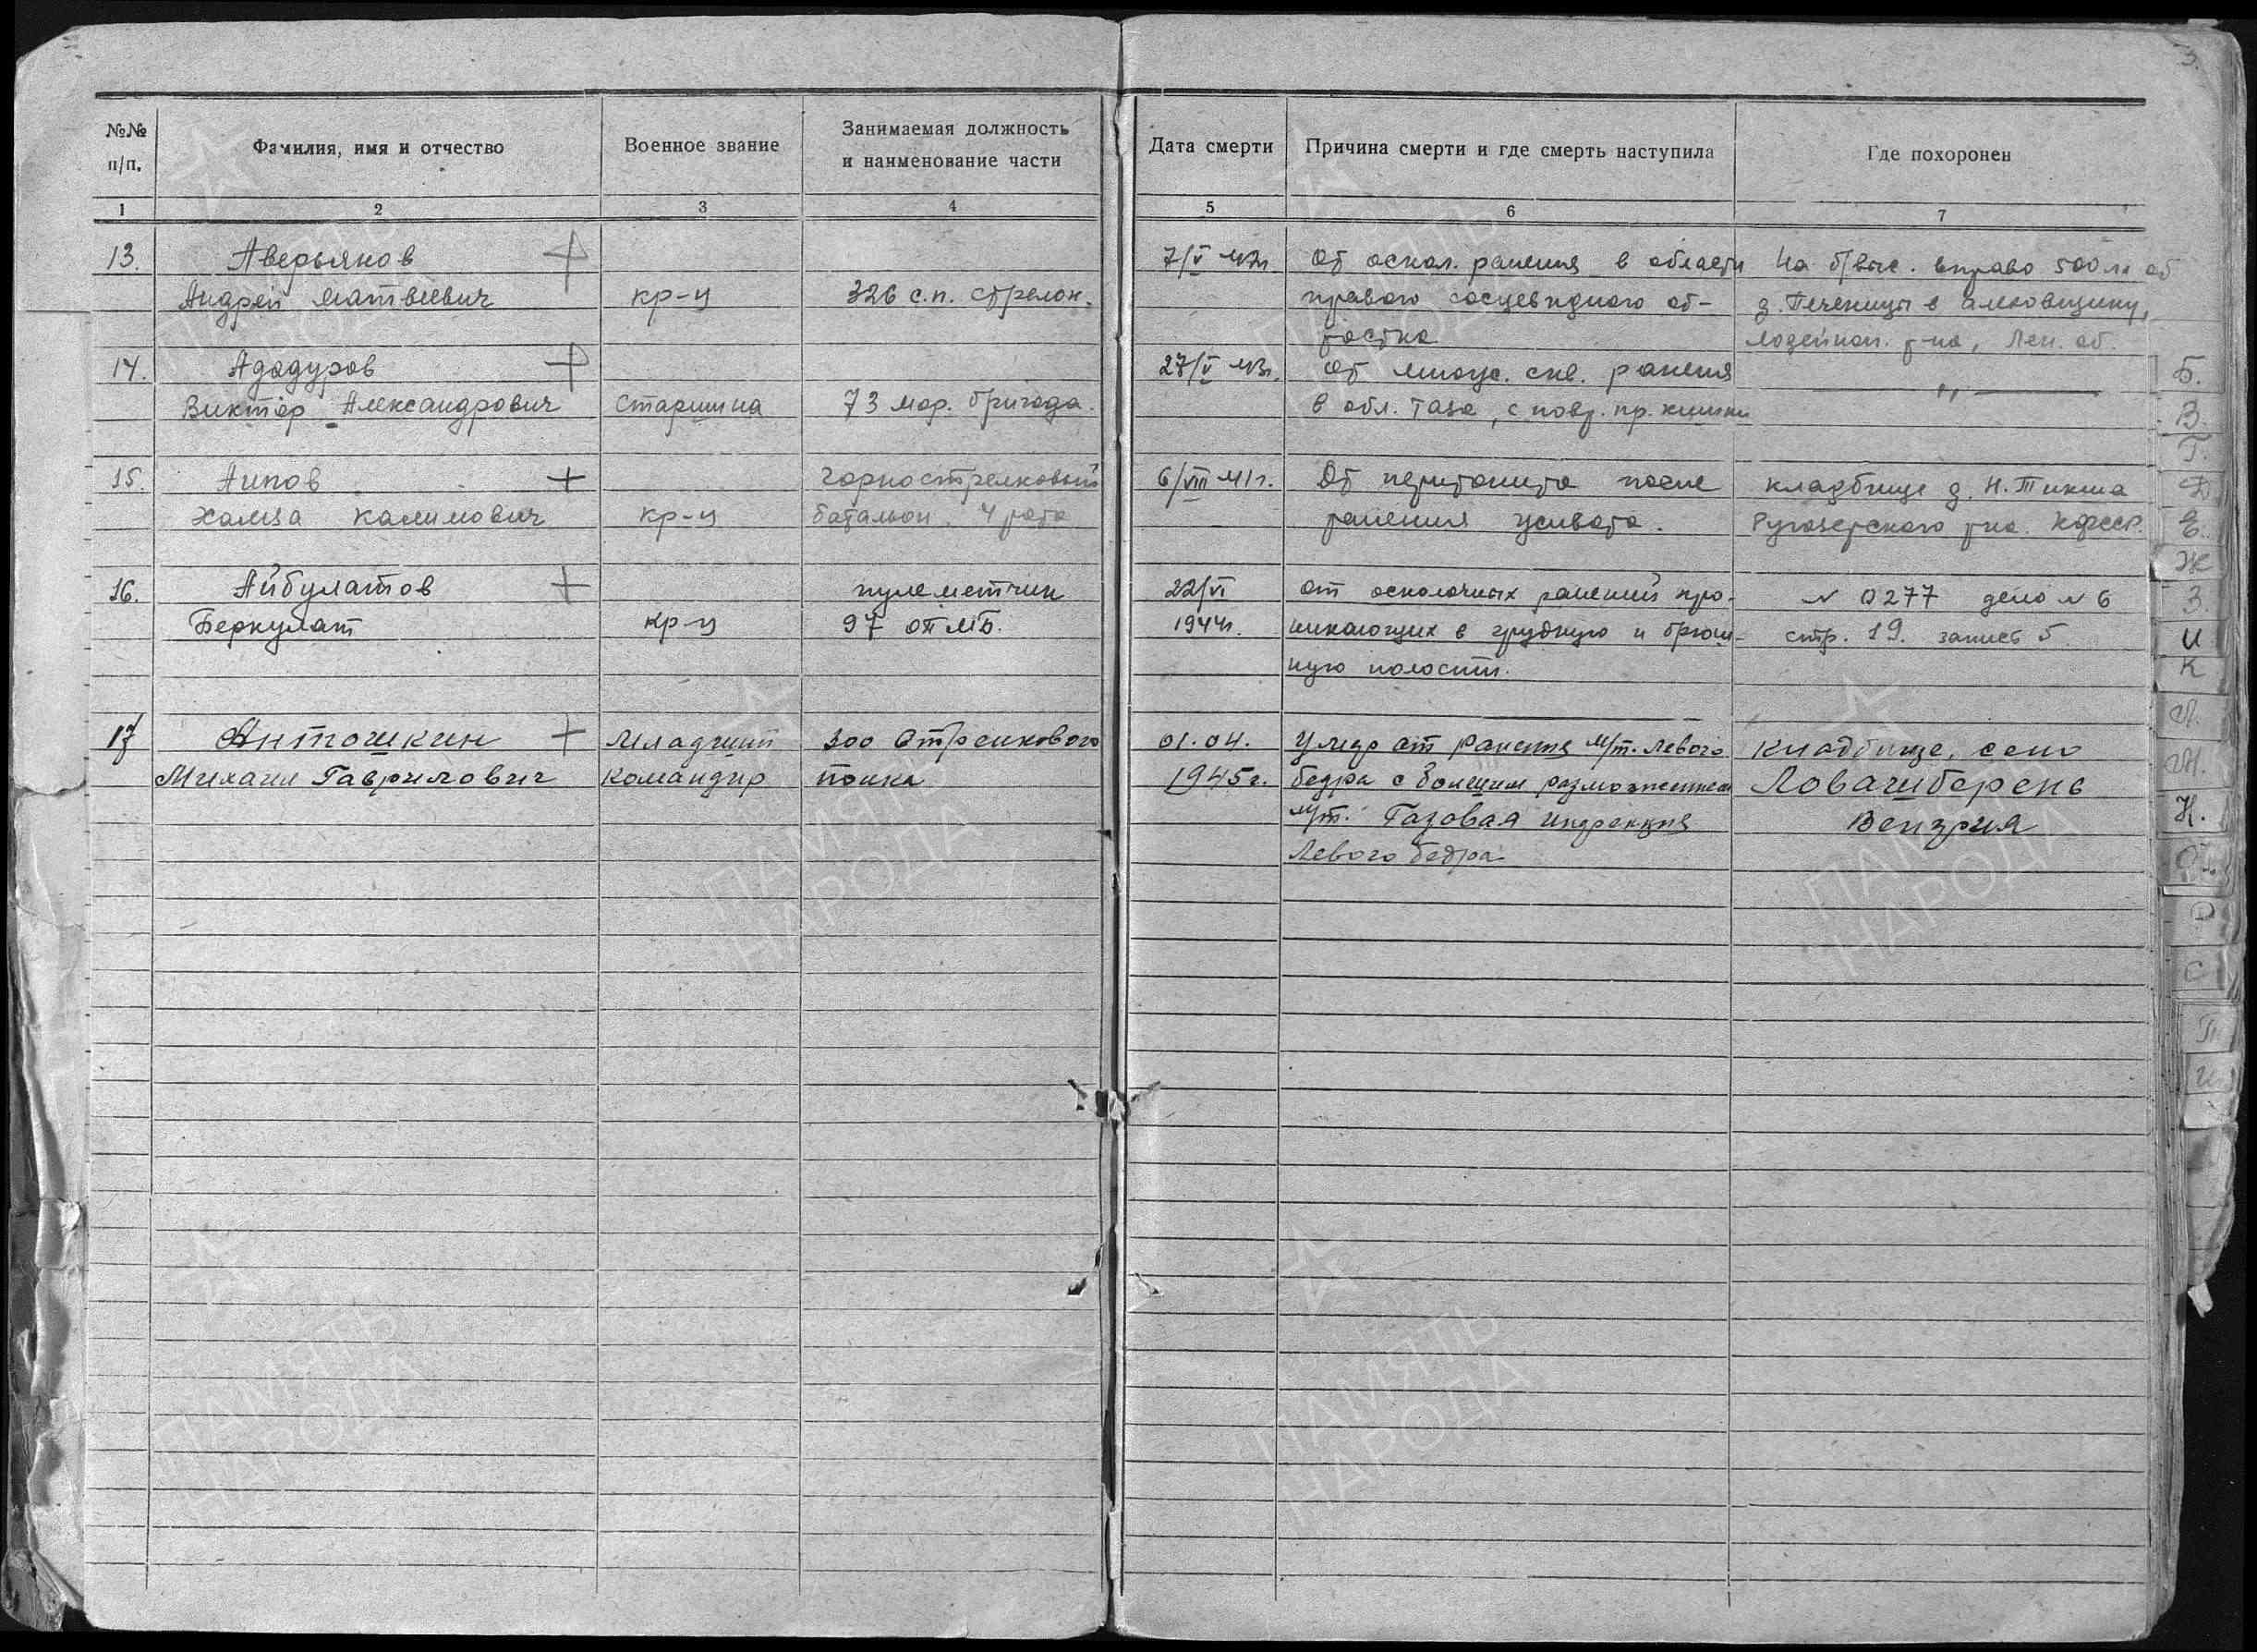 3.
№№ п/п.
Фамилия, имя и отчество
Военное звание
Занимаемая должность
и наименование части
Дата смерти
Причина смерти и где смерть наступила
Где похоронен
1 2 3 4 5 6 7
13. Аверьянов 7/V 42г. От оскол. ранения в области На б/выс. вправо 500 м от
Андрей Матвеевич кр-ц 326 с.п. стрелок. правого сосцевидного от- д. Печеницы в Алеховщину,
ростка Лодейноп. р-на, Лен. об.
14. Ададуров + 27/V 43г. От множ. скв. ранения
Виктор Александрович Старшина 73 мор. бригада. в обл. таза, с повр. пр. кишки — " —
15. Аипов + горнострелковый 6/VIII 41г. От перитонита после кладбище д. Н. Тикша
Хамза Калимович кр-ц батальон. 4 рота ранения живота. Ругозерского р-на. КФССР.
16. Айбулатов + пулеметчик 22/VI от осколочных ранений про- № 0277 дело № 6
Беркулат кр-ц 97 отпб. 1944г. никающих в грудную и брюш- стр. 19. запись 5.
ную полости.
17 Антошкин + Младший 300 Стрелкового 01.04. Умер от ранения м/т. левого Кладбище, село
Михаил Гаврилович Командир полка 1945г. бедра с большим размозжением Ловашберень
м/т. Газовая инфекция Венгрия
Левого бедра
Б.
В.
Г.
Д.
Е.
Ж
З.
И
К
Л.
М.
Н.
О.
Р
С
Т.
ПАМЯТЬ
НАРОДА
ПАМЯТЬ
НАРОДА
ПАМЯТЬ
НАРОДА
ПАМЯТЬ
НАРОДА
ПАМЯТЬ
НАРОДА
ПАМЯТЬ
НАРОДА